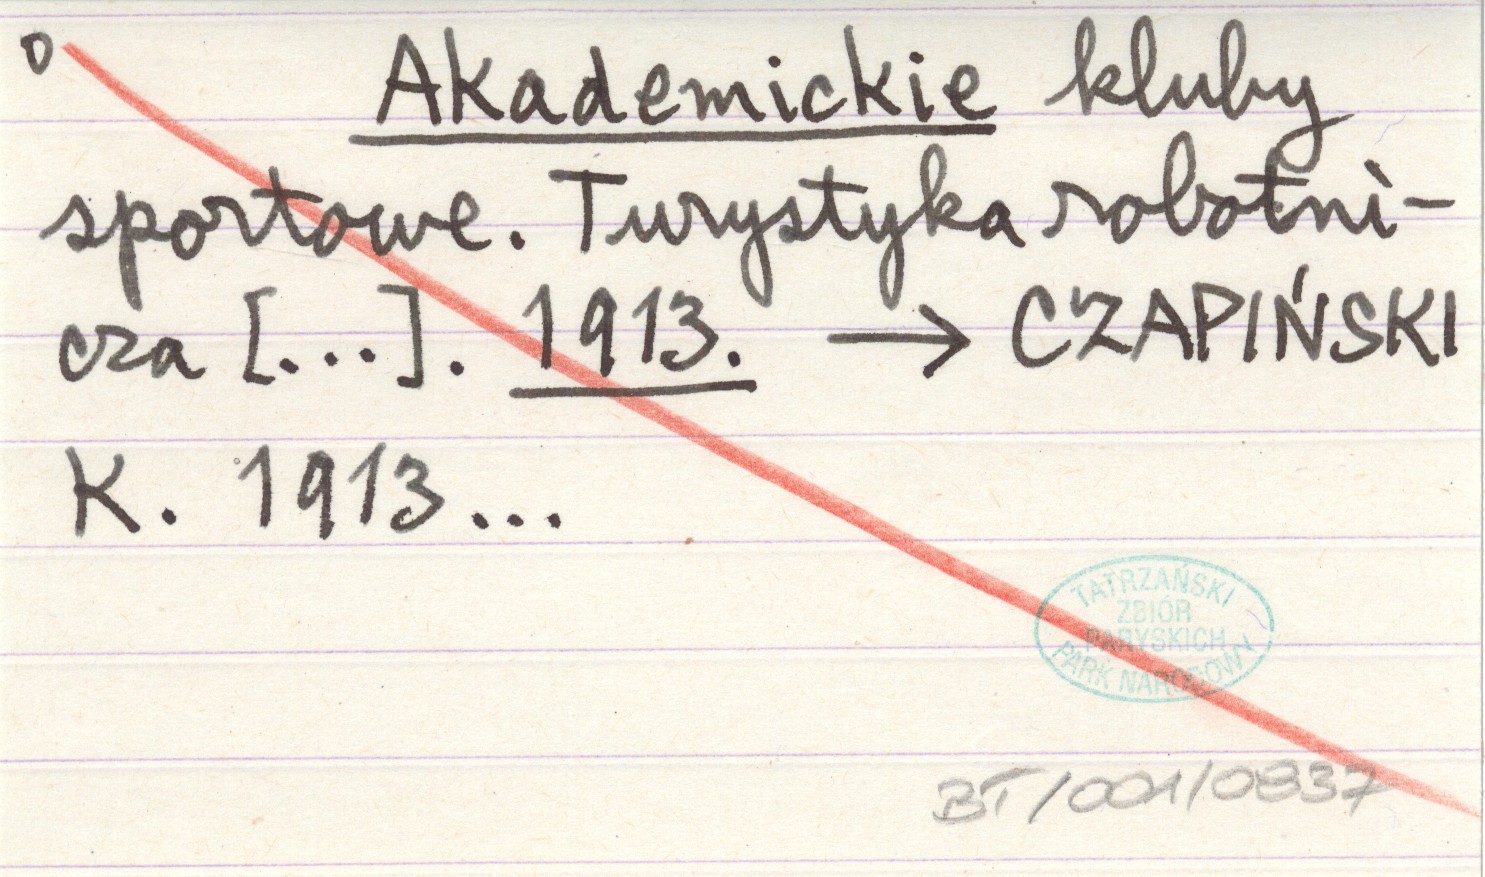 O
Akademickie kluby
sportowe. Turystyka robotni-
cza [...]. 1913. → CZAPIŃSKI
K. 1913...
TATRZAŃSKI
ZBIÓR
PARYSKICH
PARK NARODOWY
BT/001/0837